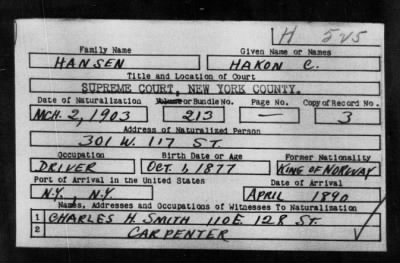 H 525
Family Name Given Name or Names
HANSEN HAKON C.
Title and Location of Court
SUPREME COURT, NEW YORK COUNTY.
Date of Naturalization Volume or Bundle No. Page No. Copy of Record No.
MCH. 2, 1903 213 — 3
Address of Naturalized Person
301 W. 117 ST.
Occupation Birth Date or Age Former Nationality
DRIVER OCT. 1, 1877 KING OF NORWAY
Port of Arrival in the United States Date of Arrival
N.Y., N.Y. APRIL 1890
Names, Addresses and Occupations of Witnesses To Naturalization
1 CHARLES H. SMITH 110 E. 128 ST.
2 CARPENTER